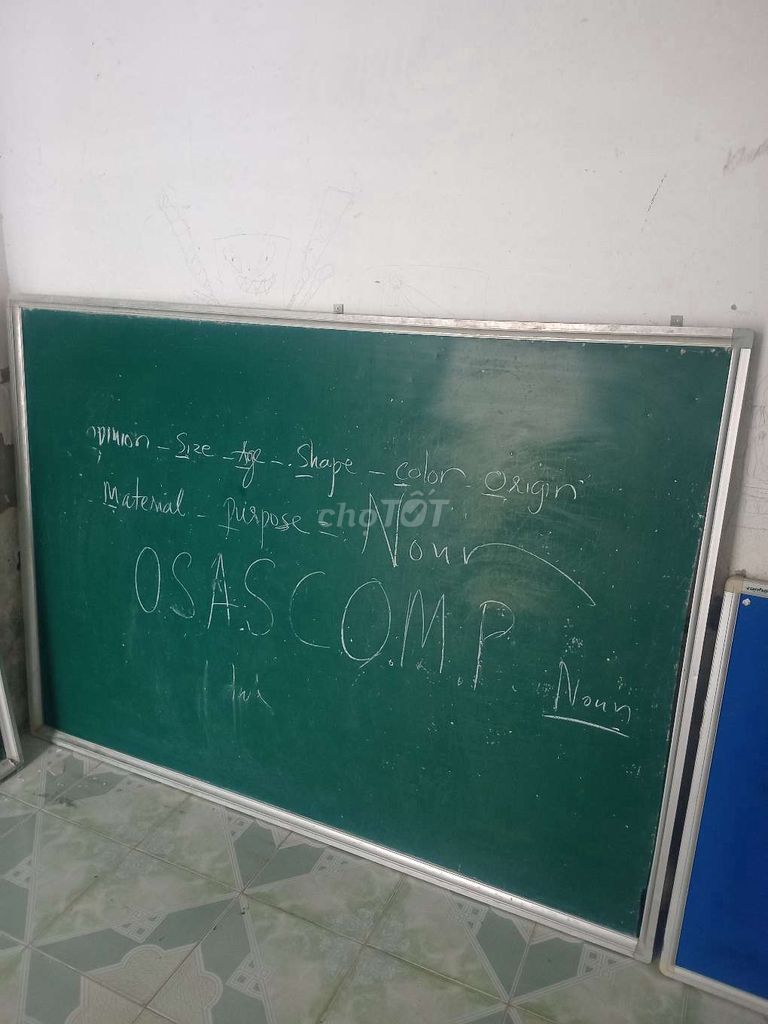 opinion - Size - Age - Shape - Color - Origin
Material - purpose - Noun
O.S.A.S.C.O.M.P. Noun
choTỐT